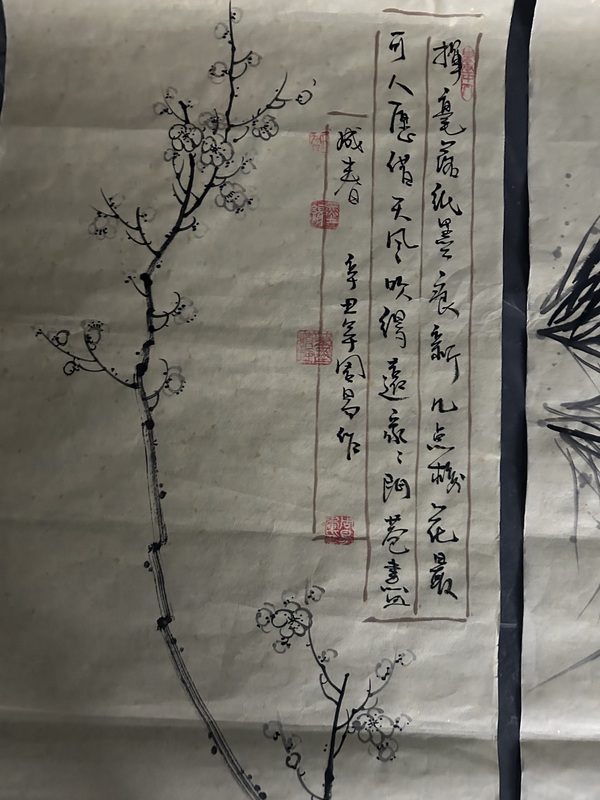 揮毫落紙墨痕新几点梅花最
可人愿借天風吹得遠家家門巷盡
成春
辛丑年周昌作